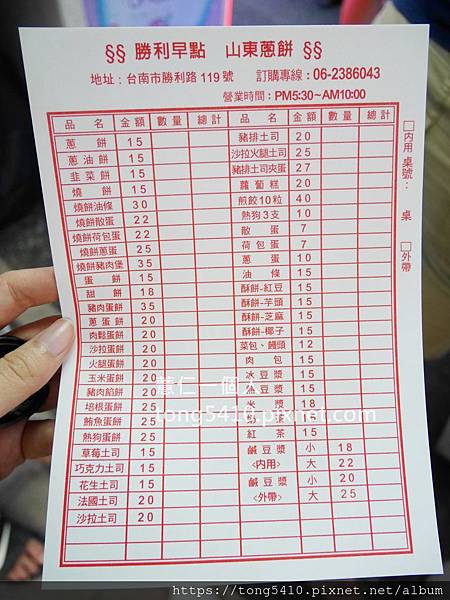 §§ 勝利早點 山東蔥餅 §§
地址：台南市勝利路 119 號 訂購專線：06-2386043
營業時間：PM5:30~AM10:00
品名 金額 數量 總計 品名 金額 數量 總計
□内用 桌號： 桌
□外帶
蔥餅 15
蔥油餅 15
韭菜餅 15
燒餅 15
燒餅油條 30
燒餅散蛋 22
燒餅荷包蛋 22
燒餅蔥蛋 25
燒餅豬肉堡 35
蛋餅 15
甜餅 18
豬肉蛋餅 35
蔥蛋餅 20
肉鬆蛋餅 20
沙拉蛋餅 20
火腿蛋餅 20
玉米蛋餅 20
豬肉餡餅 20
培根蛋餅 25
鮪魚蛋餅 25
熱狗蛋餅 25
草莓土司 15
巧克力土司 15
花生土司 15
法國土司 20
沙拉土司 20
豬排土司 20
沙拉火腿土司 25
豬排土司夾蛋 27
蘿蔔糕 20
煎餃10粒 40
熱狗3支 10
散蛋 7
荷包蛋 7
蔥蛋 10
油條 15
酥餅-紅豆 15
酥餅-芋頭 15
酥餅-芝麻 15
酥餅-椰子 15
菜包、饅頭 12
肉包 15
冰豆漿 15
豆漿 15
米漿 18
紅茶 15
鹹豆漿 小 18
<内用> 大 22
鹹豆漿 小 20
<外帶> 大 25
薏仁一個人
tong5410.pixnet.com
https://tong5410.pixnet.net/album